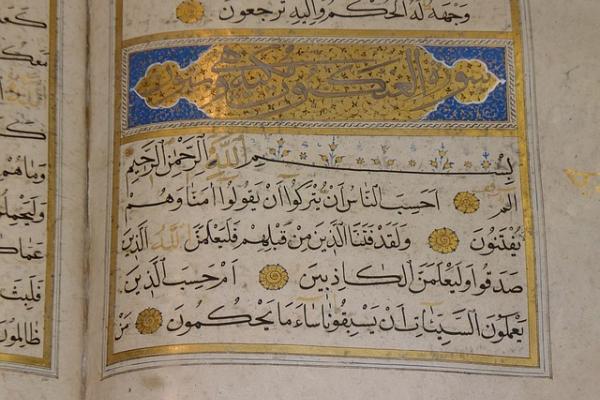 وَجْهَهُ لَهُ الْحُكْمُ وَإِلَيْهِ تُرْجَعُونَ
سورة العنكبوت مكية وهي
بِسْمِ اللَّهِ الرَّحْمَنِ الرَّحِيمِ
الم اَحَسِبَ النَّاسُ اَنْ يُتْرَكُوا اَنْ يَقُولُوا آمَنَّا وَهُمْ
يُفْتَنُونَ وَلَقَدْ فَتَنَّا الَّذِينَ مِنْ قَبْلِهِمْ فَلَيَعْلَمَنَّ اللَّهُ الَّذِينَ
صَدَقُوا وَلَيَعْلَمَنَّ الْكَاذِبِينَ اَمْ حَسِبَ الَّذِينَ
يَعْمَلُونَ السَّيِّئَاتِ اَنْ يَسْبِقُونَا سَاءَ مَا يَحْكُمُونَ مَنْ
مَعَكُمْ
وَمَاهُمْ
فَلَبِثَ
ظَالِمُونَ